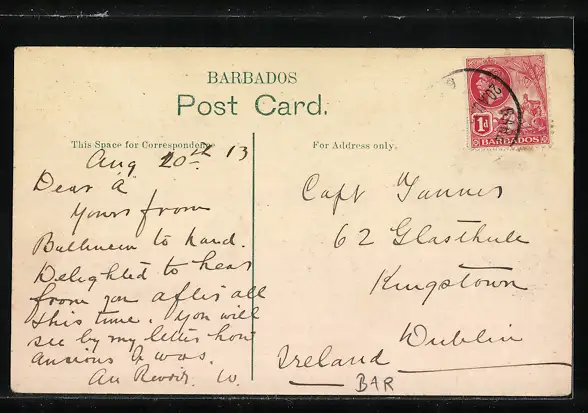 BARBADOS
Post Card.
This Space for Correspondence
For Address only.
Aug 20th 13
Dear A.
Yours from
to hand.
Delighted to hear
from you after all
this time. You will
see by my letter how
anxious I was.
Au Revoir. W.
Capt Tanner
62 Glasthule
Kingstown
Dublin
Ireland
BAR
1d
BARBADOS